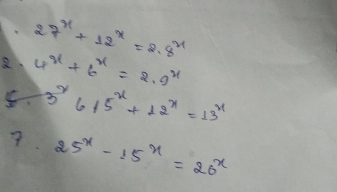 . 27ˣ + 12ˣ = 2.8ˣ
2. 4ˣ + 6ˣ = 2.9ˣ
6 . 5ˣ + 12ˣ = 13ˣ
7. 25ˣ - 15ˣ = 26ˣ